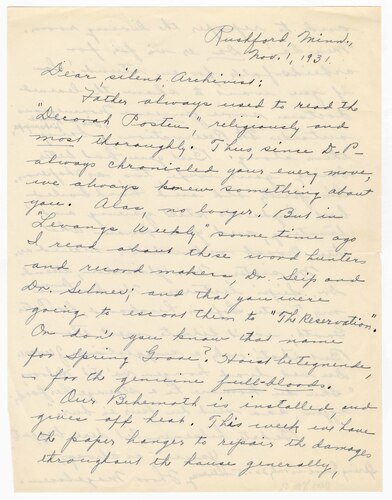 Rushford, Minn.,
Nov. 1, 1931.
Dear silent Archivist:
Father always used to read the
"Decorah Posten", religiously and
most thoroughly. Thus, since D. P-
always chronicled your every move,
we always knew something about
you. Alas, no longer! But in
"Levangs Weekly" some time ago
I read about these word hunters
and record makers, Dr. Seip and
Dr. Selmer; and that you were
going to escort them to "The Reservation".
Or don't you know that name
for Spring Grove? Hoist betegnende,
- for the genuine full-bloods.
Our Behemoth is installed, and
gives off heat. This week we have
the paper hanger to repair the damages
throughout the house generally,